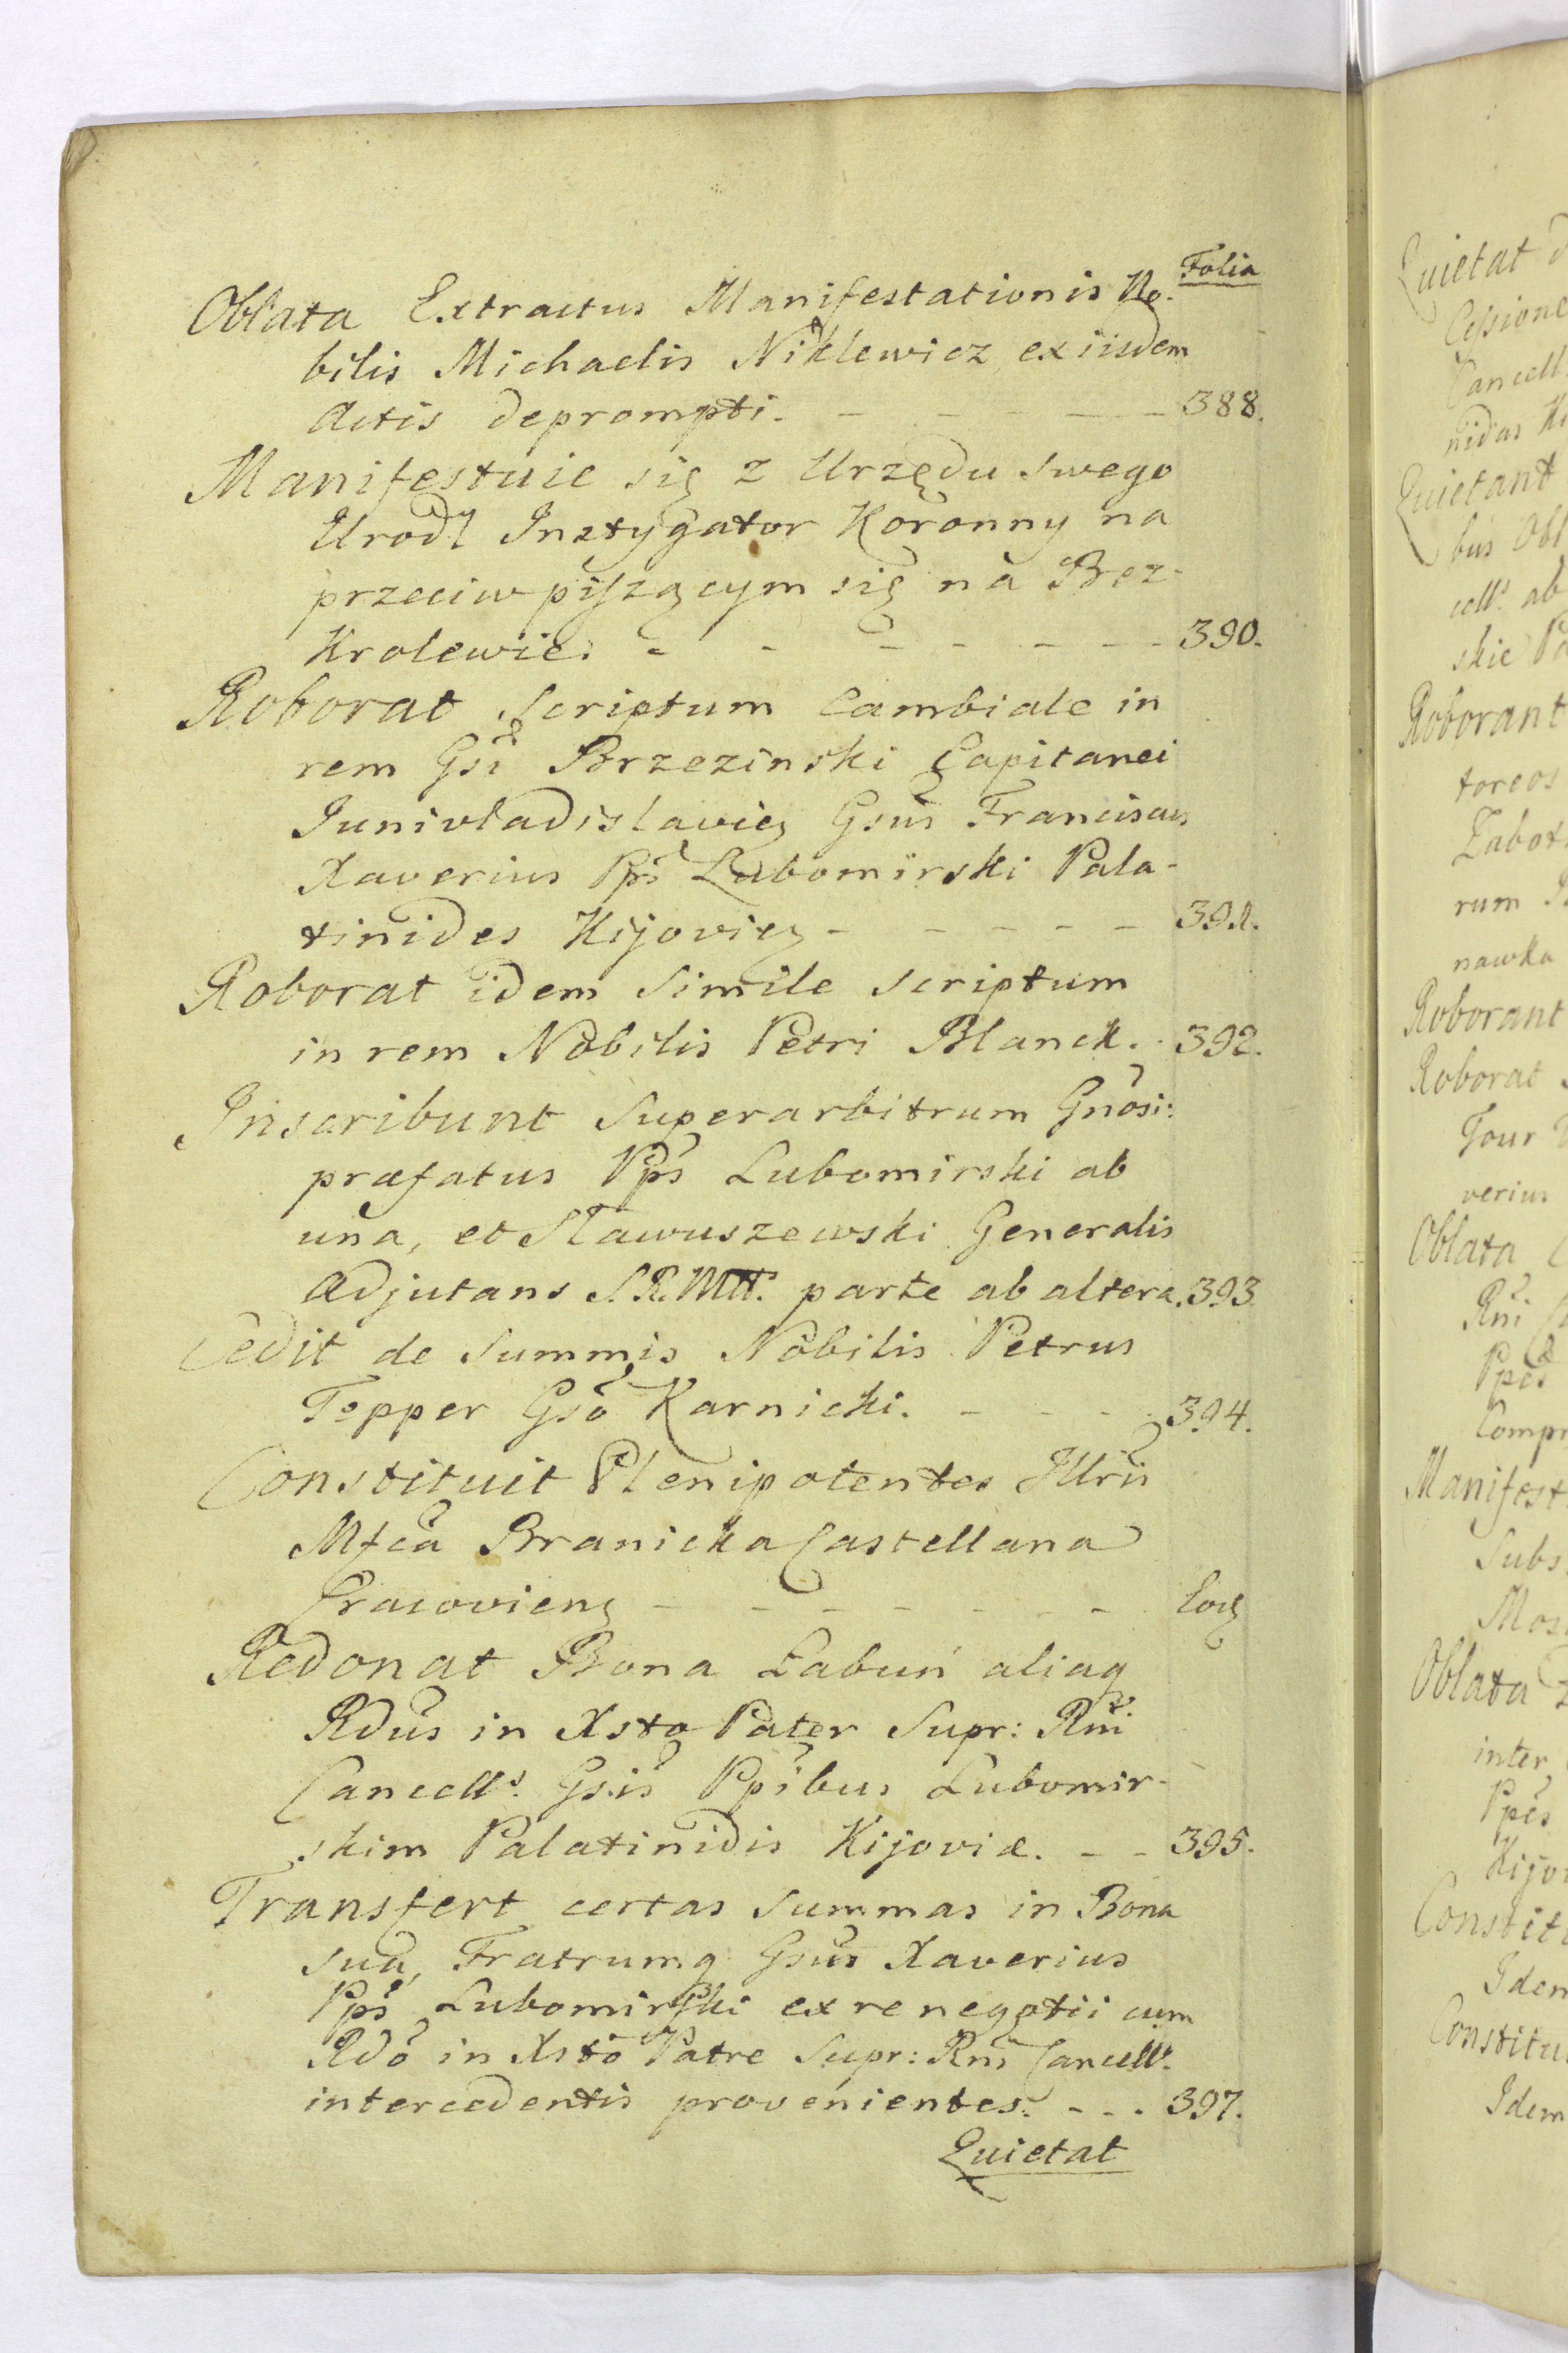 Folia
Oblata Extractus Manifestationis No-
bilis Michaelis Niklewicz ex iisdem
Actis deprompti. - - - - 388.
Manifestuie się z Urzędu swego
Urodł Instygator Koronny na
przeciw piszącym się na Bez-
Krolewie. - - - - - - - 390.
Roborat Scriptum Cambiale in
rem Gsi Brzezinski Capitanei
Junivladislavieȝ Gsus Franciscus
Xaverius Pps Lubomirski Pala-
tinides Kijovieȝ - - - - - 391.
Roborat idem simile scriptum
in rem Nobilis Petri Blanck. - 392.
Inscribunt Superarbitrum Gnosi:
præfatus Pps Lubomirski ab
una, et Sławuszewski Generalis
Adjutans S.R.Mtt. parte ab altera. 393.
Cedit de Summis Nobilis Petrus
Tepper Gso Karnicki. - - - - 394.
Constituit Plenipotentes Illris
Mfca Branicka Castellana
Cracovienȝ - - - - - - - Eodȝ
Redonat Bona Łabuń aliaq
Rdus in Xsto Pater Supr: Rni
Cancells. Gsis Ppibus Lubomir-
skim Palatinidis Kijoviæ. - - 395.
Transfert certas Summas in Bona
sua, Fratrumq Gsus Xaverius
Pps Lubomirski ex re negotii cum
Rdo in Xsto Patre Supr: Rni Cancells.
intercedentis provenientes. - - - 397.
Quietat
Quietat
Cessione
Cancell.
nidas
Quietant
bus Obl
cells. ab
skie
Roborant
toreos
Zabot
rum
nawka
Roborant
Roborat
Gour
verius
Oblata
Rni
Ppes
Compr
Manifest
Subs
Mos
Oblata
inter
Ppes
Kijov
Constit
Idem
Constitu
Idem